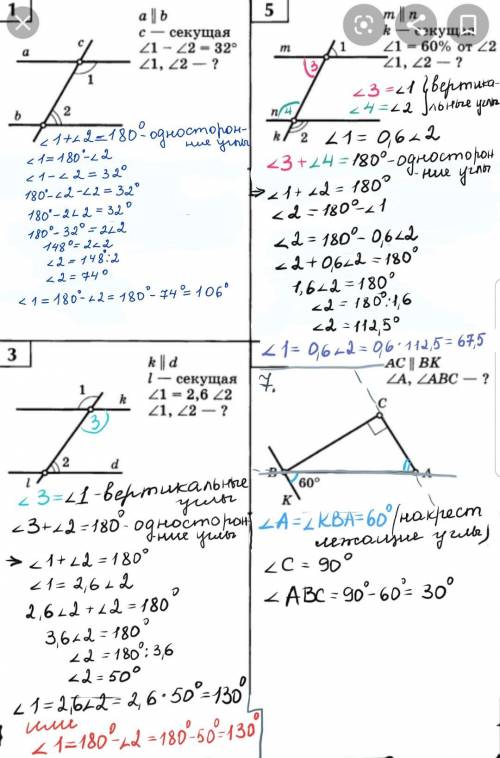 1
a ∥ b
c — секущая
∠1 − ∠2 = 32°
∠1, ∠2 — ?
c
a
1
b
2
∠1+∠2=180° - односторон-
ние углы
∠1=180°-∠2
∠1-∠2=32°
180°-∠2-∠2=32°
180°-2∠2=32°
180°-32°=2∠2
148°=2∠2
∠2=148°:2
∠2=74°
∠1=180°-∠2=180°-74°=106°
5
m ∥ n
k — секущая
∠1 = 60% от ∠2
∠1, ∠2 — ?
m
1
3
n
4
k
2
∠3=∠1 } вертика-
∠4=∠2 } льные углы
∠1=0,6∠2
∠3+∠4=180° - односторон
ние углы
⇒ ∠1+∠2=180°
∠2=180°-∠1
∠2=180°-0,6∠2
∠2+0,6∠2=180°
1,6∠2=180°
∠2=180°:1,6
∠2=112,5°
∠1=0,6∠2=0,6·112,5=67,5
3
k ∥ d
l — секущая
∠1 = 2,6 ∠2
∠1, ∠2 — ?
1
k
3
2
d
l
∠3=∠1 - вертикальные
углы
∠3+∠2=180° - односторон
ние углы
→ ∠1+∠2=180°
∠1=2,6∠2
2,6∠2+∠2=180°
3,6∠2=180°
∠2=180°:3,6
∠2=50°
∠1=2,6∠2=2,6·50°=130°
или
∠1=180°-∠2=180°-50°=130°
7.
AC ∥ BK
∠A, ∠ABC — ?
C
B
A
60°
K
∠A=∠KBA=60° (накрест
лежащие углы)
∠C=90°
∠ABC=90°-60°=30°